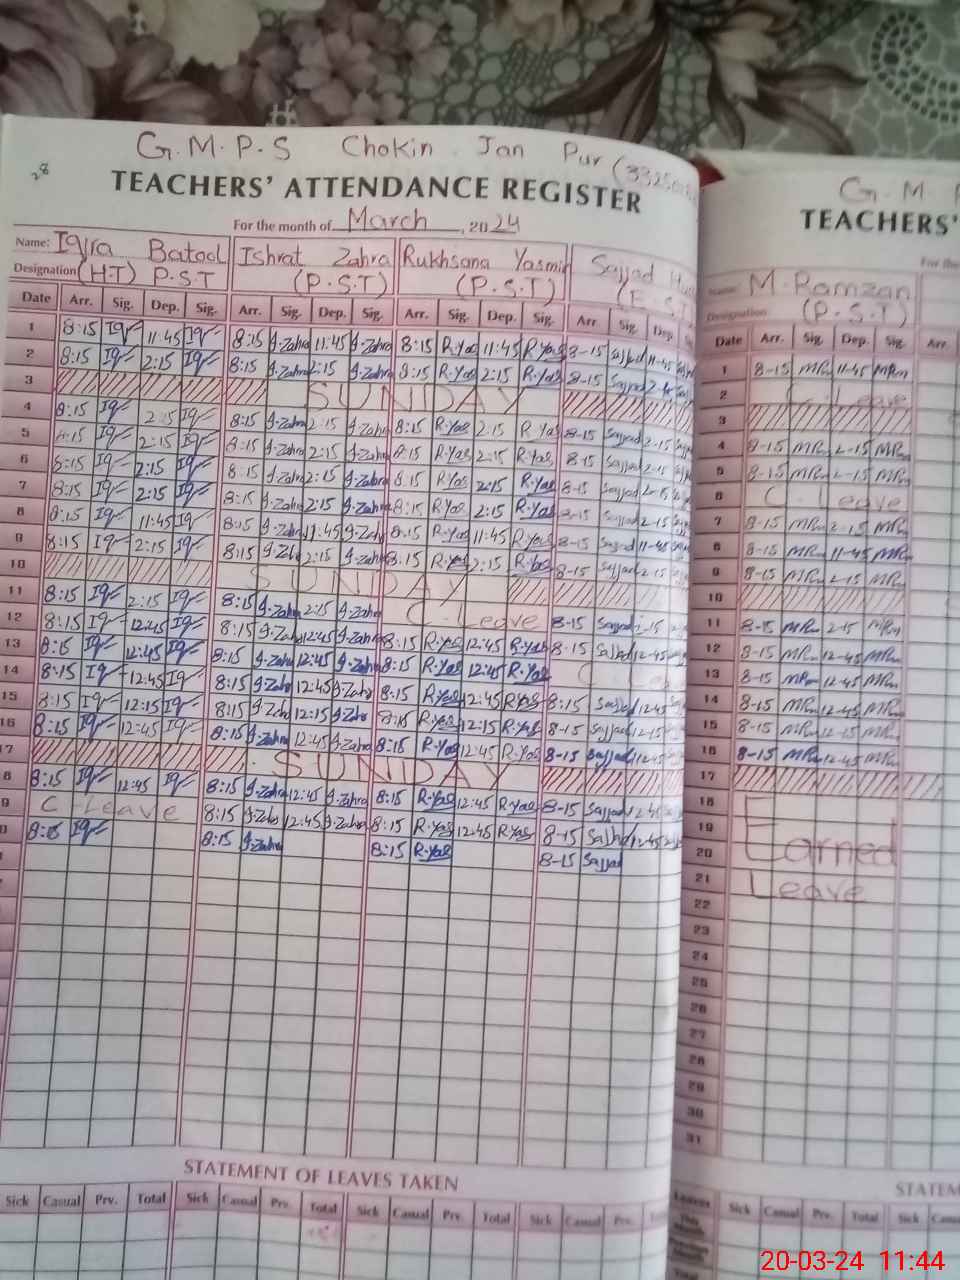 G.M.P.S Chokin Jan Pur
28
TEACHERS' ATTENDANCE REGISTER
For the month of March, 2024
Name: Iqra Batool Ishrat Zahra Rukhsana Yasmin Sajjad
Designation (H.T) P.S.T (P.S.T) (P.S.T)
Date Arr. Sig. Dep. Sig. Arr. Sig. Dep. Sig. Arr. Sig. Dep. Sig. Arr Sig. Dep
1 8:15 Iq 11:45 Iq 8:15 I.Zahra 11:45 I.Zahra 8:15 R.Yas 11:45 R.Yas 8-15 Sajjad 11-45
2 8:15 Iq 2:15 Iq 8:15 I.Zahra 2:15 I.Zahra 8:15 R.Yas 2:15 R.Yas 8-15 Sajjad
3 SUNDAY
4 8:15 Iq 2:15 Iq 8:15 I.Zahra 2:15 I.Zahra 8:15 R.Yas 2:15 R.Yas 8-15 Sajjad 2-15
5 8:15 Iq 2:15 Iq 8:15 I.Zahra 2:15 I.Zahra 8:15 R.Yas 2:15 R.Yas 8-15 Sajjad 2-15
6 8:15 Iq 2:15 Iq 8:15 I.Zahra 2:15 I.Zahra 8:15 R.Yas 2:15 R.Yas 8-15 Sajjad 2-15
7 8:15 Iq 2:15 Iq 8:15 I.Zahra 2:15 I.Zahra 8:15 R.Yas 2:15 R.Yas 8-15 Sajjad 2-15
8 8:15 Iq 11:45 Iq 8:15 I.Zahra 11:45 I.Zahra 8:15 R.Yas 11:45 R.Yas 8-15 Sajjad 11-45
9 8:15 Iq 2:15 Iq 8:15 I.Zahra 2:15 I.Zahra 8:15 R.Yas 2:15 R.Yas 8-15 Sajjad 2-15
10 SUNDAY
11 8:15 Iq 2:15 Iq 8:15 I.Zahra 2:15 I.Zahra C.Leave 8-15 Sajjad 2-15
12 8:15 Iq 12:45 Iq 8:15 I.Zahra 12:45 I.Zahra 8:15 R.Yas 12:45 R.Yas 8-15 Sajjad 12-45
13 8:15 Iq 12:45 Iq 8:15 I.Zahra 12:45 I.Zahra 8:15 R.Yas 12:45 R.Yas C
14 8:15 Iq 12:45 Iq 8:15 I.Zahra 12:45 I.Zahra 8:15 R.Yas 12:45 R.Yas 8:15 Sajjad 12-45
15 8:15 Iq 12:15 Iq 8:15 I.Zahra 12:15 I.Zahra 8:15 R.Yas 12:15 R.Yas 8-15 Sajjad 12-15
16 8:15 Iq 12:45 Iq 8:15 I.Zahra 12:45 I.Zahra 8:15 R.Yas 12:45 R.Yas 8-15 Sajjad 12-45
17 SUNDAY
8 8:15 Iq 12:45 Iq 8:15 I.Zahra 12:45 I.Zahra 8:15 R.Yas 12:45 R.Yas 8-15 Sajjad 12-45
9 C-Leave 8:15 I.Zahra 12:45 I.Zahra 8:15 R.Yas 12:45 R.Yas 8-15 Sajjad 12-45
8:15 Iq 8:15 I.Zahra 8:15 R.Yas 8-15 Sajjad
STATEMENT OF LEAVES TAKEN
Sick Casual Prv. Total Sick Casual Prv. Total Sick Casual Prv. Total Sick Casual Prv. Total
G.M
TEACHERS'
Name: M.Ramzan
Designation (P.S.T)
Date Arr. Sig. Dep. Sig. Arr.
1 8-15 MRm 11-45 MRm
2 C. Leave
3
4 8-15 MRm 2-15 MRm
5 8-15 MRm 2-15 MRm
6 C. Leave
7 8-15 MRm 2-15 MRm
8 8-15 MRm 11-45 MRm
9 8-15 MRm 2-15 MRm
10
11 8-15 MRm 2-15 MRm
12 8-15 MRm 12-45 MRm
13 8-15 MRm 12-45 MRm
14 8-15 MRm 12-45 MRm
15 8-15 MRm 12-15 MRm
16 8-15 MRm 12-45 MRm
17
18
19 Earned
20
21 Leave
22
23
24
25
26
27
28
29
30
31
Leaves Sick Casual Prv. Total Sick
Total
20-03-24 11:44